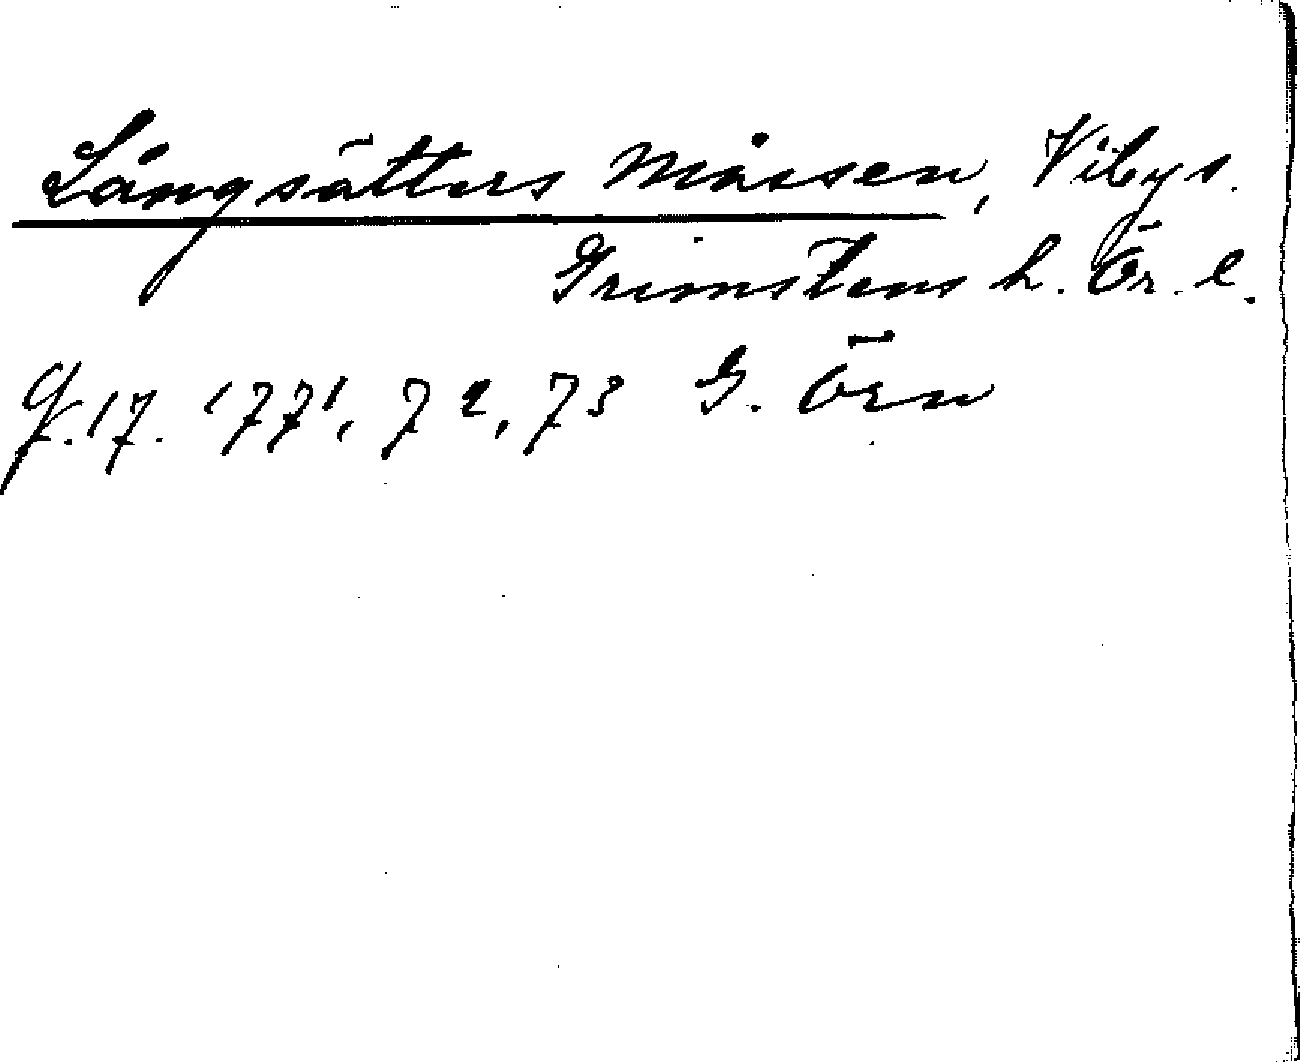 Långsätters Måssen, Viby s.
Grimstens h. Ör. l.
17. 1771, 72, 73 G. Örn